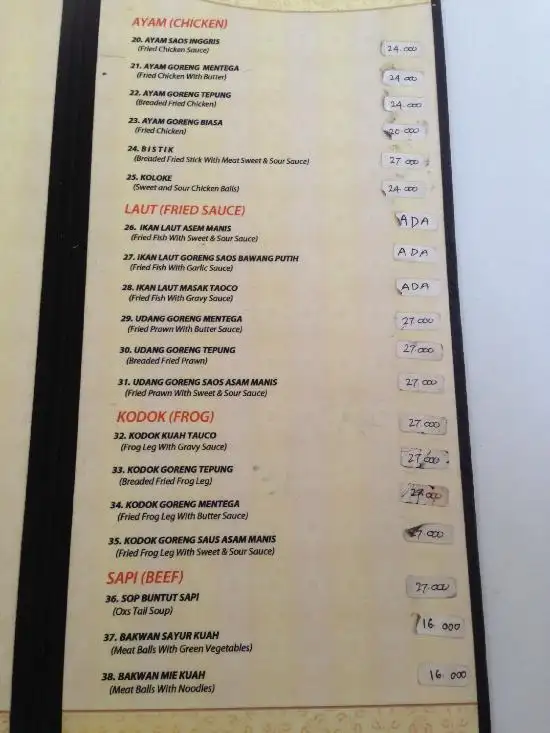 AYAM (CHICKEN)
20. AYAM SAOS INGGRIS 24.000
(Fried Chicken Sauce)
21. AYAM GORENG MENTEGA 24.000
(Fried Chicken With Butter)
22. AYAM GORENG TEPUNG 24.000
(Breaded Fried Chicken)
23. AYAM GORENG BIASA 20.000
(Fried Chicken)
24. BISTIK 27.000
(Breaded Fried Stick With Meat Sweet & Sour Sauce)
25. KOLOKE 24.000
(Sweet and Sour Chicken Balls)
LAUT (FRIED SAUCE)
26. IKAN LAUT ASEM MANIS ADA
(Fried Fish With Sweet & Sour Sauce)
27. IKAN LAUT GORENG SAOS BAWANG PUTIH ADA
(Fried Fish With Garlic Sauce)
28. IKAN LAUT MASAK TAOCO ADA
(Fried Fish With Gravy Sauce)
29. UDANG GORENG MENTEGA 27.000
(Fried Prawn With Butter Sauce)
30. UDANG GORENG TEPUNG 27.000
(Breaded Fried Prawn)
31. UDANG GORENG SAOS ASAM MANIS 27.000
(Fried Prawn With Sweet & Sour Sauce)
KODOK (FROG)
32. KODOK KUAH TAUCO 27.000
(Frog Leg With Gravy Sauce)
33. KODOK GORENG TEPUNG 27.000
(Breaded Fried Frog Leg)
34. KODOK GORENG MENTEGA 27.000
(Fried Frog Leg With Butter Sauce)
35. KODOK GORENG SAUS ASAM MANIS 27.000
(Fried Frog Leg With Sweet & Sour Sauce)
SAPI (BEEF)
36. SOP BUNTUT SAPI 27.000
(Oxs Tail Soup)
37. BAKWAN SAYUR KUAH 16.000
(Meat Balls With Green Vegetables)
38. BAKWAN MIE KUAH 16.000
(Meat Balls With Noodles)